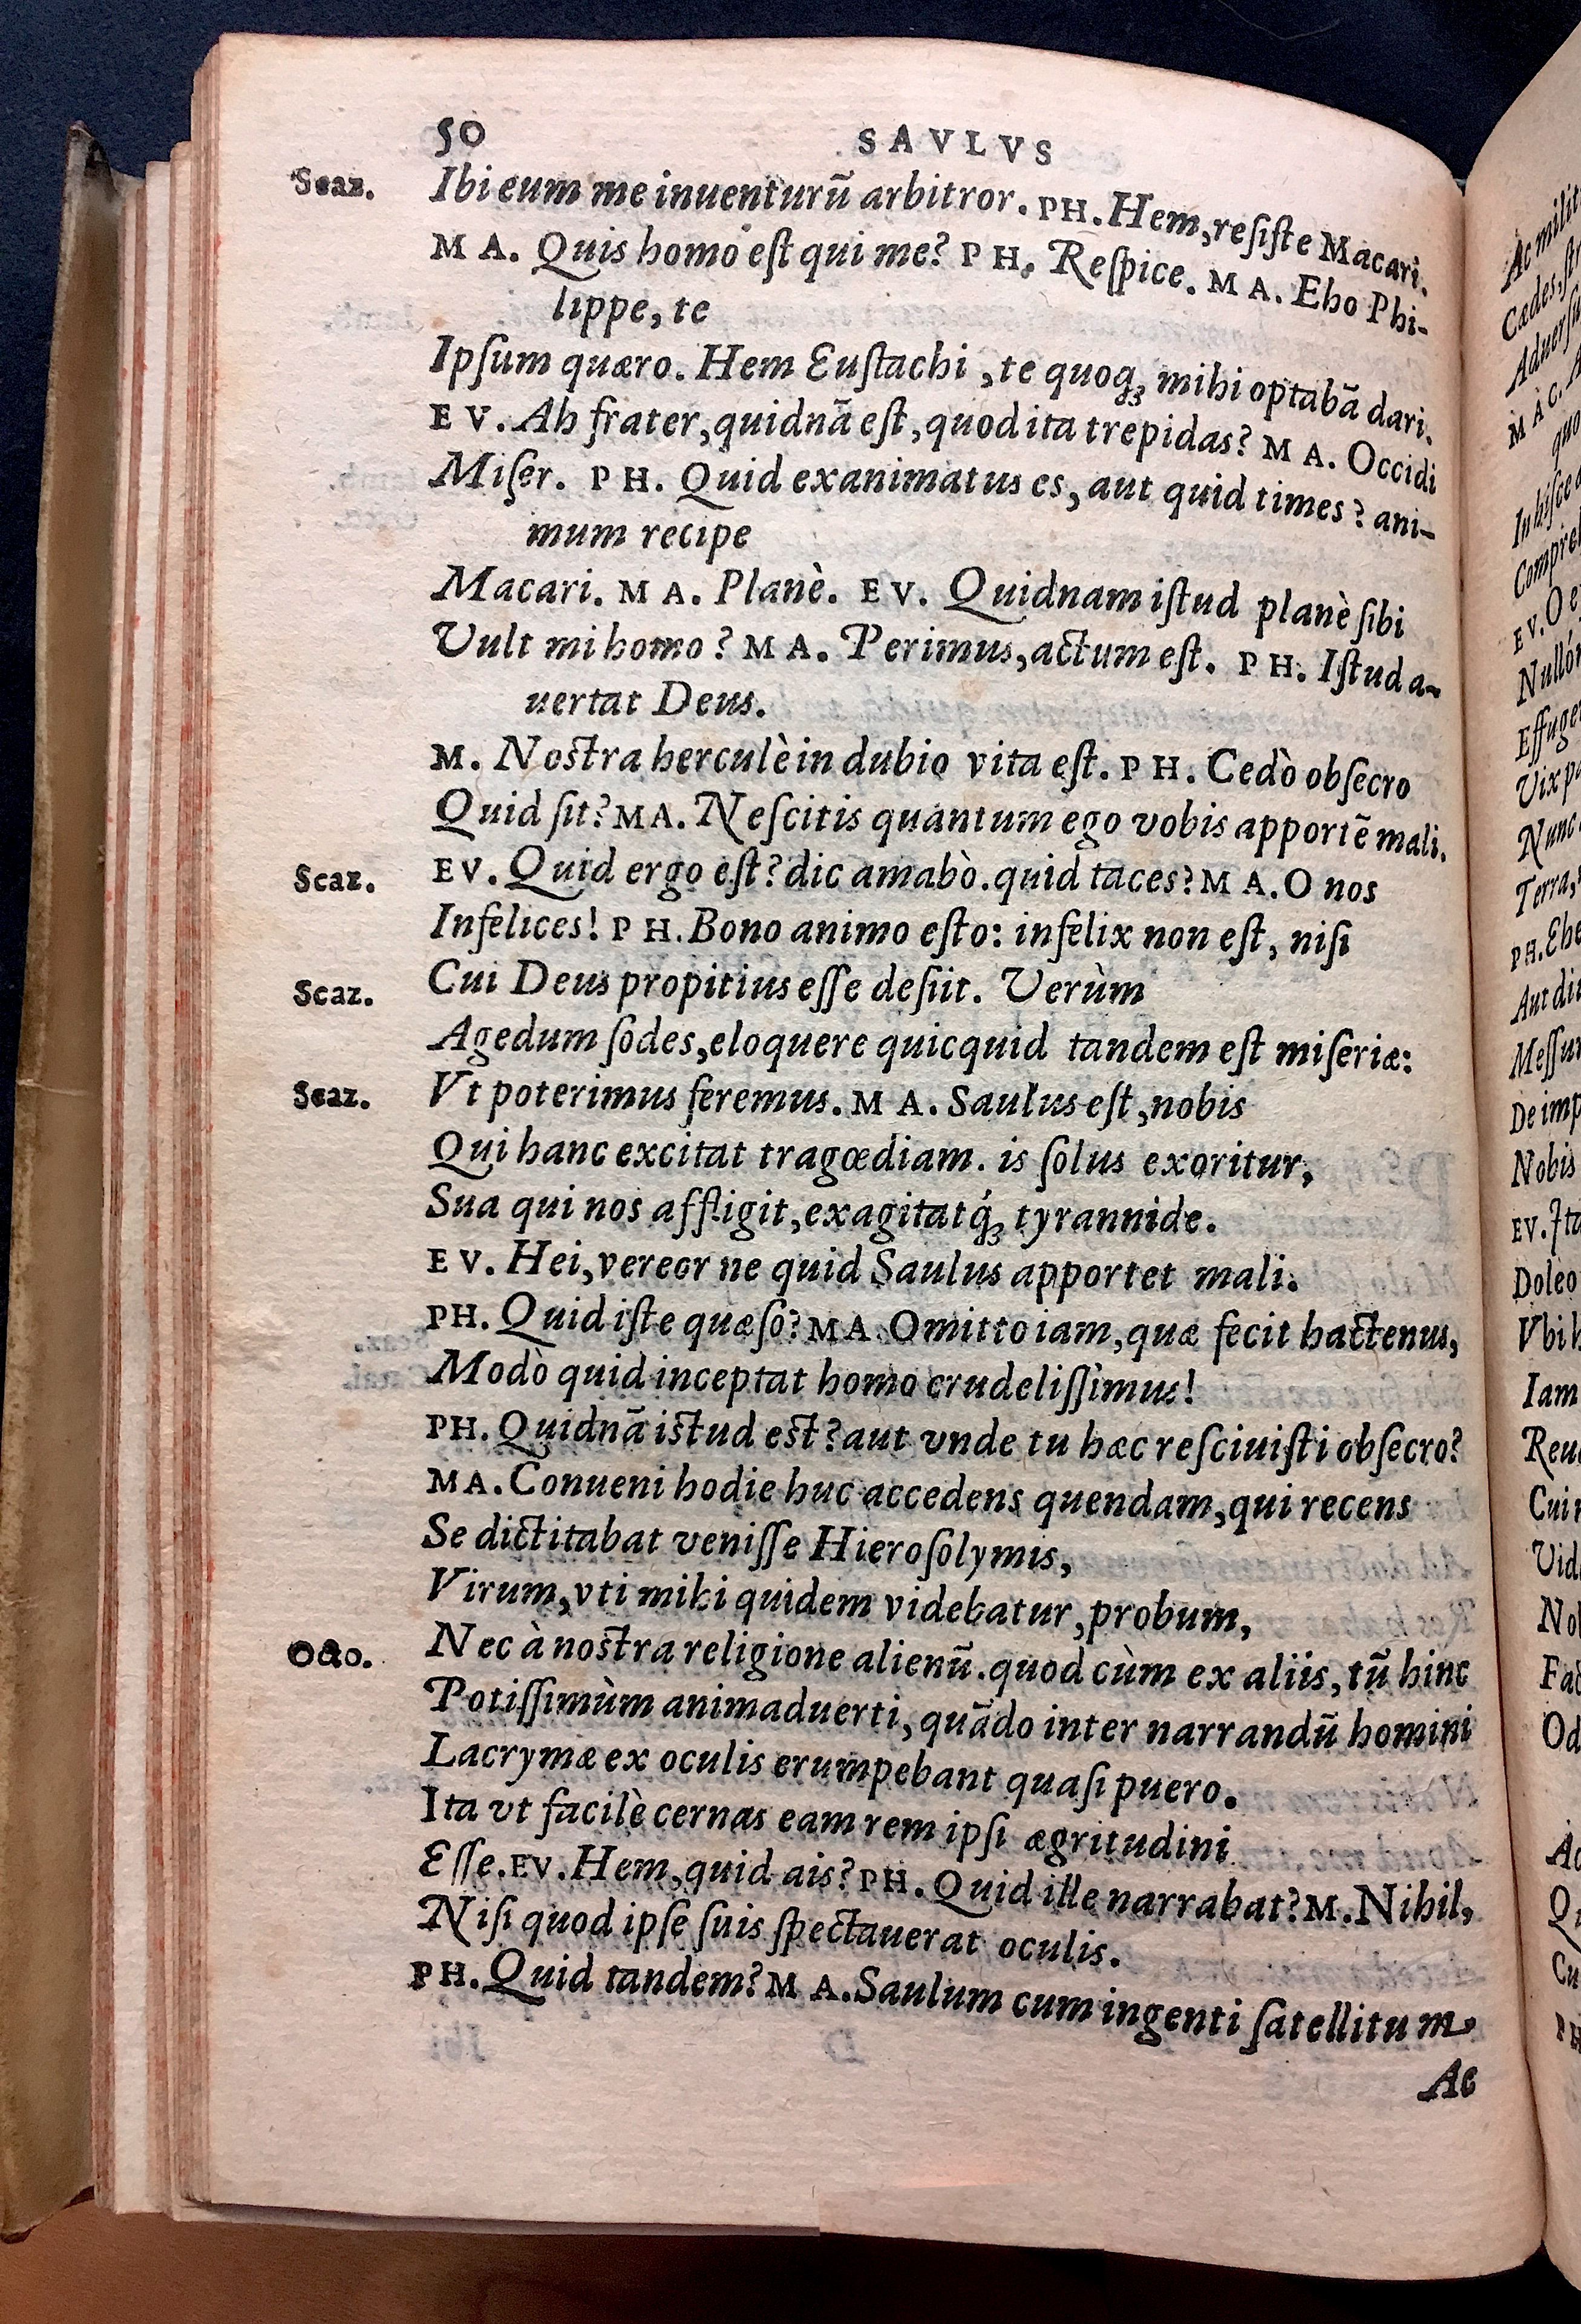 50 SAVLVS
Scaz. Ibi eum me inuenturũ arbitror. PH. Hem, resiste Macari.
MA. Quis homo est qui me? PH. Respice. MA. Eho Phi-
lippe, te
Ipsum quæro. Hem Eustachi, te quoqꝫ mihi optabã dari.
EV. Ah frater, quidnã est, quod ita trepidas? MA. Occidi
Miser. PH. Quid exanimatus es, aut quid times? ani-
mum recipe
Macari. MA. Planè. EV. Quidnam istud planè sibi
Vult mi homo? MA. Perimus, actum est. PH. Istud a-
uertat Deus.
M. Nostra herculè in dubio vita est. PH. Cedò obsecro
Quid sit? MA. Nescitis quantum ego vobis apportẽ mali.
Scaz. EV. Quid ergo est? dic amabò. quid taces? MA. O nos
Infelices! PH. Bono animo esto: infelix non est, nisi
Scaz. Cui Deus propitius esse desiit. Verùm
Agedum sodes, eloquere quicquid tandem est miseriæ:
Scaz. Vt poterimus feremus. MA. Saulus est, nobis
Qui hanc excitat tragœdiam. is solus exoritur,
Sua qui nos affligit, exagitatq́ꝫ tyrannide.
EV. Hei, vereor ne quid Saulus apportet mali.
PH. Quid iste quæso? MA. Omitto iam, quæ fecit hactenus,
Modò quid inceptat homo crudelissimus!
PH. Quidnã istud est? aut vnde tu hæc resciuisti obsecro?
MA. Conueni hodie huc accedens quendam, qui recens
Se dictitabat venisse Hierosolymis,
Virum, vti mihi quidem videbatur, probum,
Octo. Nec à nostra religione alienũ. quod cùm ex aliis, tũ hinc
Potissimùm animaduerti, quãdo inter narrandũ homini
Lacrymæ ex oculis erumpebant quasi puero.
Ita vt facilè cernas eam rem ipsi ægritudini
Esse. EV. Hem, quid ais? PH. Quid ille narrabat? M. Nihil,
Nisi quod ipse suis spectauerat oculis.
PH. Quid tandem? MA. Saulum cum ingenti satellitum
Ac
Ac milit
Cædes, str
Aduersu
MAC. A
quo
In hisce a
Compreh
EV. O
Nullón
Effuge
Vix pa
Nunc
Terra,
PH. Ehe
Aut diu
Messu
De imp
Nobis
EV. Ita
Doleo
Vbi h
Iam
Reu
Cui
Vid
Nob
Fac
Od
Ac
Qu
Cu
PH